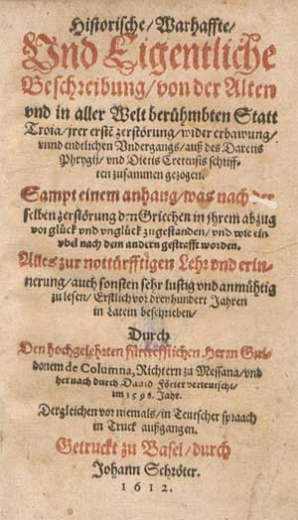 Historische/Warhaffte/
Und Eigentliche
Beschreibung/von der Alten
vnd in aller Welt berühmbten Statt
Troia/jrer erste zerstörung/wider erbawung/
vnnd endtlichen Vndergangs/auß des Daretis
Phrygii/vnd Dictis Cretensis schriff-
ten zusammen gezogen.
Sampt einem anhang/was nach der
selben zerstörung den Griechen in jhrem abzug
vor glück vnd vnglück zugestanden/vnd wie ein
vbel nach dem andern gestrafft worden.
Alles zur notturfftigen Lehr vnd erin-
nerung/auch sonsten sehr lustig vnd anmühtig
zu lesen/Erstlich vor drenhundert Jahren
in Latein beschrieben/
Durch
Den hochgelehrten fürtrefflichen Herrn Gui-
donem de Columna, Richtern zu Messana/vnd
hernach durch Dauid Förter verteutscht/
im 1598. Jahr.
Dergleichen vor niemals/in Teutscher spraach
in Truck außgangen.
Getruckt zu Basel/durch
Johann Schröter.
1612.